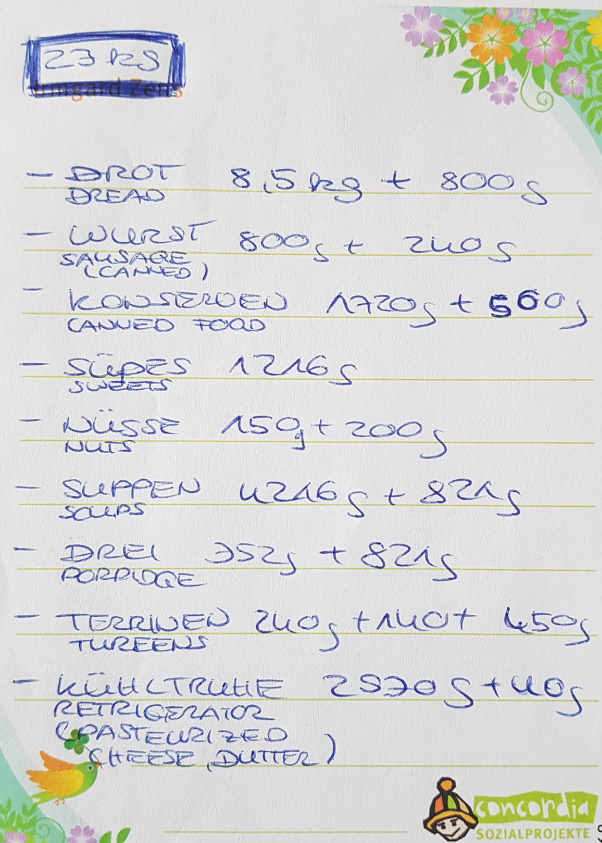 23 kg
- BROT 8,5 kg + 800g
BREAD
- WURST 800g + 240g
SAUSAGE
(CANNED)
- KONSERVEN 1720g + 560g
CANNED FOOD
- SÜßES 1216g
SWEETS
- NÜSSE 150g + 200g
NUTS
- SUPPEN 4216g + 821g
SOUPS
- BREI 352g + 821g
PORRIDGE
- TERRINEN 240g + 140 + 450g
TUREENS
- KÜHLTRUHE g + 40g
REFRIGERATOR
(PASTEURIZED
CHEESE, BUTTER)
concordia
SOZIALPROJEKTE